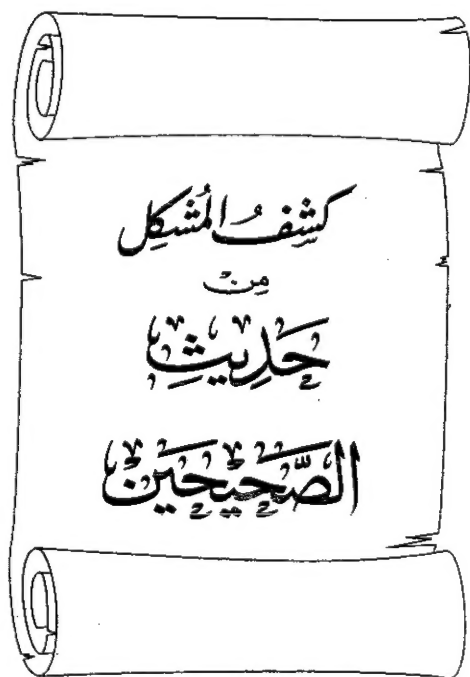 كَشْفُ المُشْكِل
مِنْ
حَدِيثِ
الصَّحِيحَيْنِ